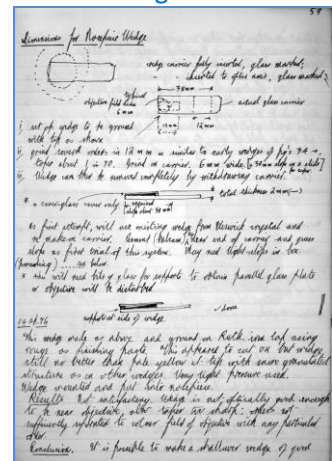 59
Dimensions for Nosepiece Wedge
wedge carrier fully inserted, glass marked;
inserted to optic axis, glass marked;
38mm
objective field
6 mm
actual glass carrier
12 mm
i, set of wedge to be ground
with top as shown
ii, grind several orders in 12 mm = similar to early wedges of pg's 3A
taper about 1 in 30. Grind on carrier. 6mm wide.
iii, Wedge can then be removed completely by withdrawing carrier.
total thickness 2mm
* = cover-glass cover only
as first attempt, will use existing wedge from Berwick crystal and
re make on carrier. Cement (balsam) near end of carrier and guess
slope as first trial of this system. May need right slope in two
below
* this will need bits of glass for supports to obtain parallel glass plate
or objective will be disturbed
support at side of wedge
This wedge made as above and ground on Ruth's iron lap using
rouge as finishing paste. This appeared to cut OK but wedge
still no better than pale yellow at tip with same
structure as on other wedges. Very light pressure used.
Wedge mounted and put into nosepiece.
Results Not satisfactory. Wedge is not optically good enough
to be near objective, also taper too sharp: orders not
sufficiently separated to colour field of objective with any particular
order.
Conclusion. It is possible to make a shallower wedge of good